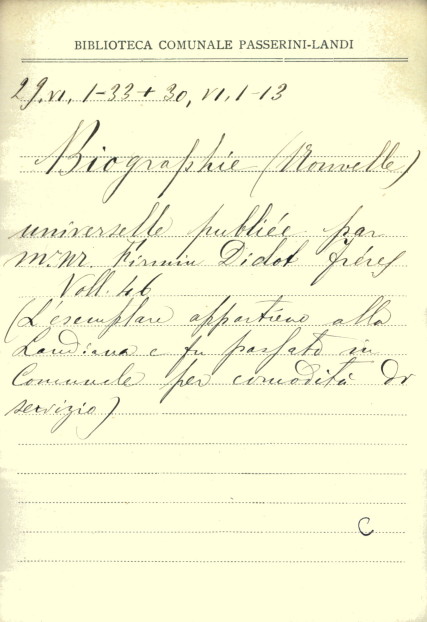 BIBLIOTECA COMUNALE PASSERINI-LANDI
29, VI, 1-33 + 30, VI, 1-13
Biographie (Nouvelle)
universelle publiée par
m.rs Firmin Didot fréres
Voll. 46
(L'esemplare appartiene alla
Landiana e fu passato in
Comunale per comodità di
servizio)
C